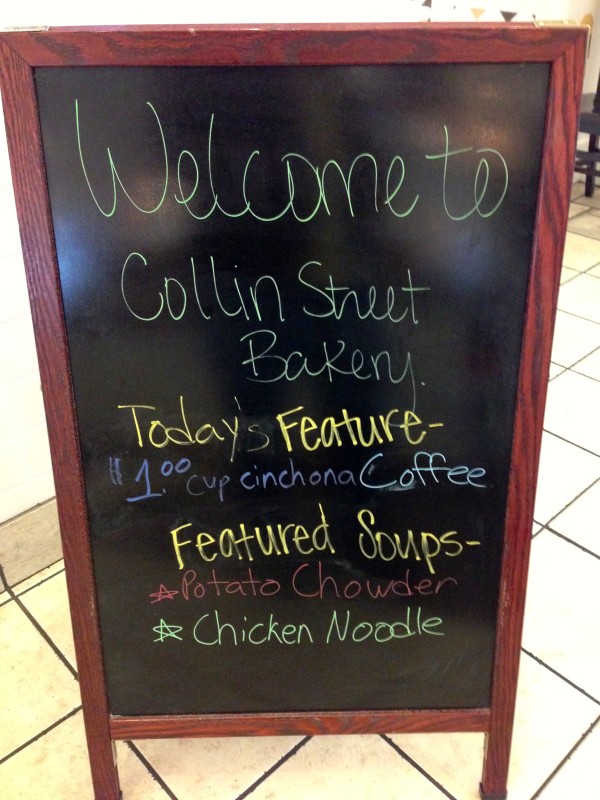 Welcome to
Collin Street
Bakery.
Today's Feature-
$1.00 cup cinchona Coffee
Featured Soups-
☆ Potato Chowder
☆ Chicken Noodle